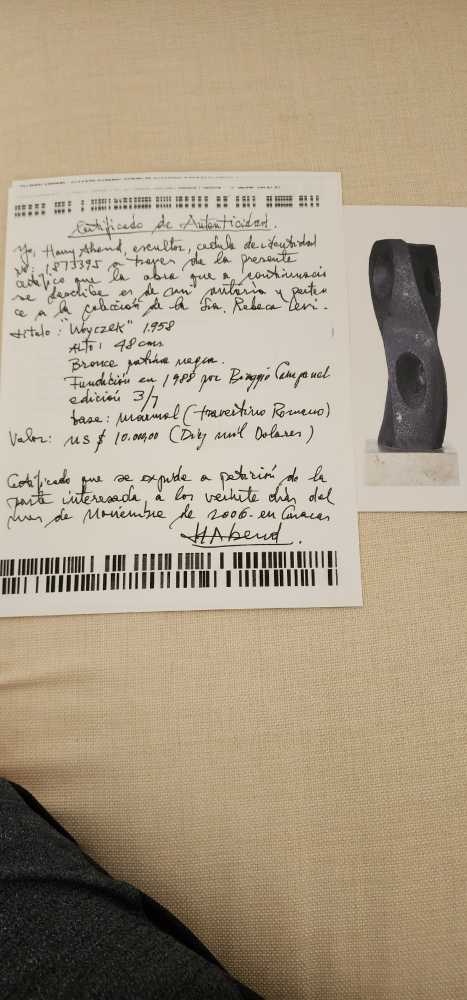 Certificado de Autenticidad.
Yo, Harry Abend, escultor, cedula de identidad
No. 1.873395 a traves de la presente
certifico que la obra que a continuacio
se describe es de mi autoria y perten
ce a la colección de la Sra. Rebeca Levi.
titulo: "Woyczek" 1958
ALTO: 48 cms
Bronce patina negra.
Fundición en 1988 por Biaggio
edición 3/7
base: marmol (travertino Romano)
Valor: US $ 10.000,00 (Diez mil Dolares)
Certificado que se expide a petición de la
parte interesada, a los veinte dias del
mes de Noviembre de 2006 en Caracas
HAbend.